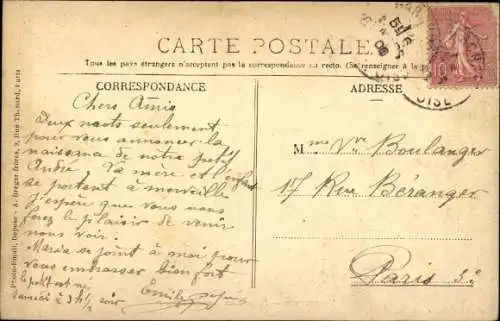 CARTE POSTALE
Tous les pays étrangers n'acceptent pas la correspondance au recto. (Se renseigner à la
CORRESPONDANCE
ADRESSE
Chers Amis
Deux mots seulement
pour vous annoncer la
naissance de notre petit
André. La mère et enfant
se portent à merveille
j'espère que vous nous
ferez le plaisir de venir
nous voir.
Maria se joint à moi pour
vous embrasser bien fort
le petit est né
Samedi à 3h½ soir
Emile
Mme Vve Boulanger
17 Rue Béranger
Paris 3e
OISE
10